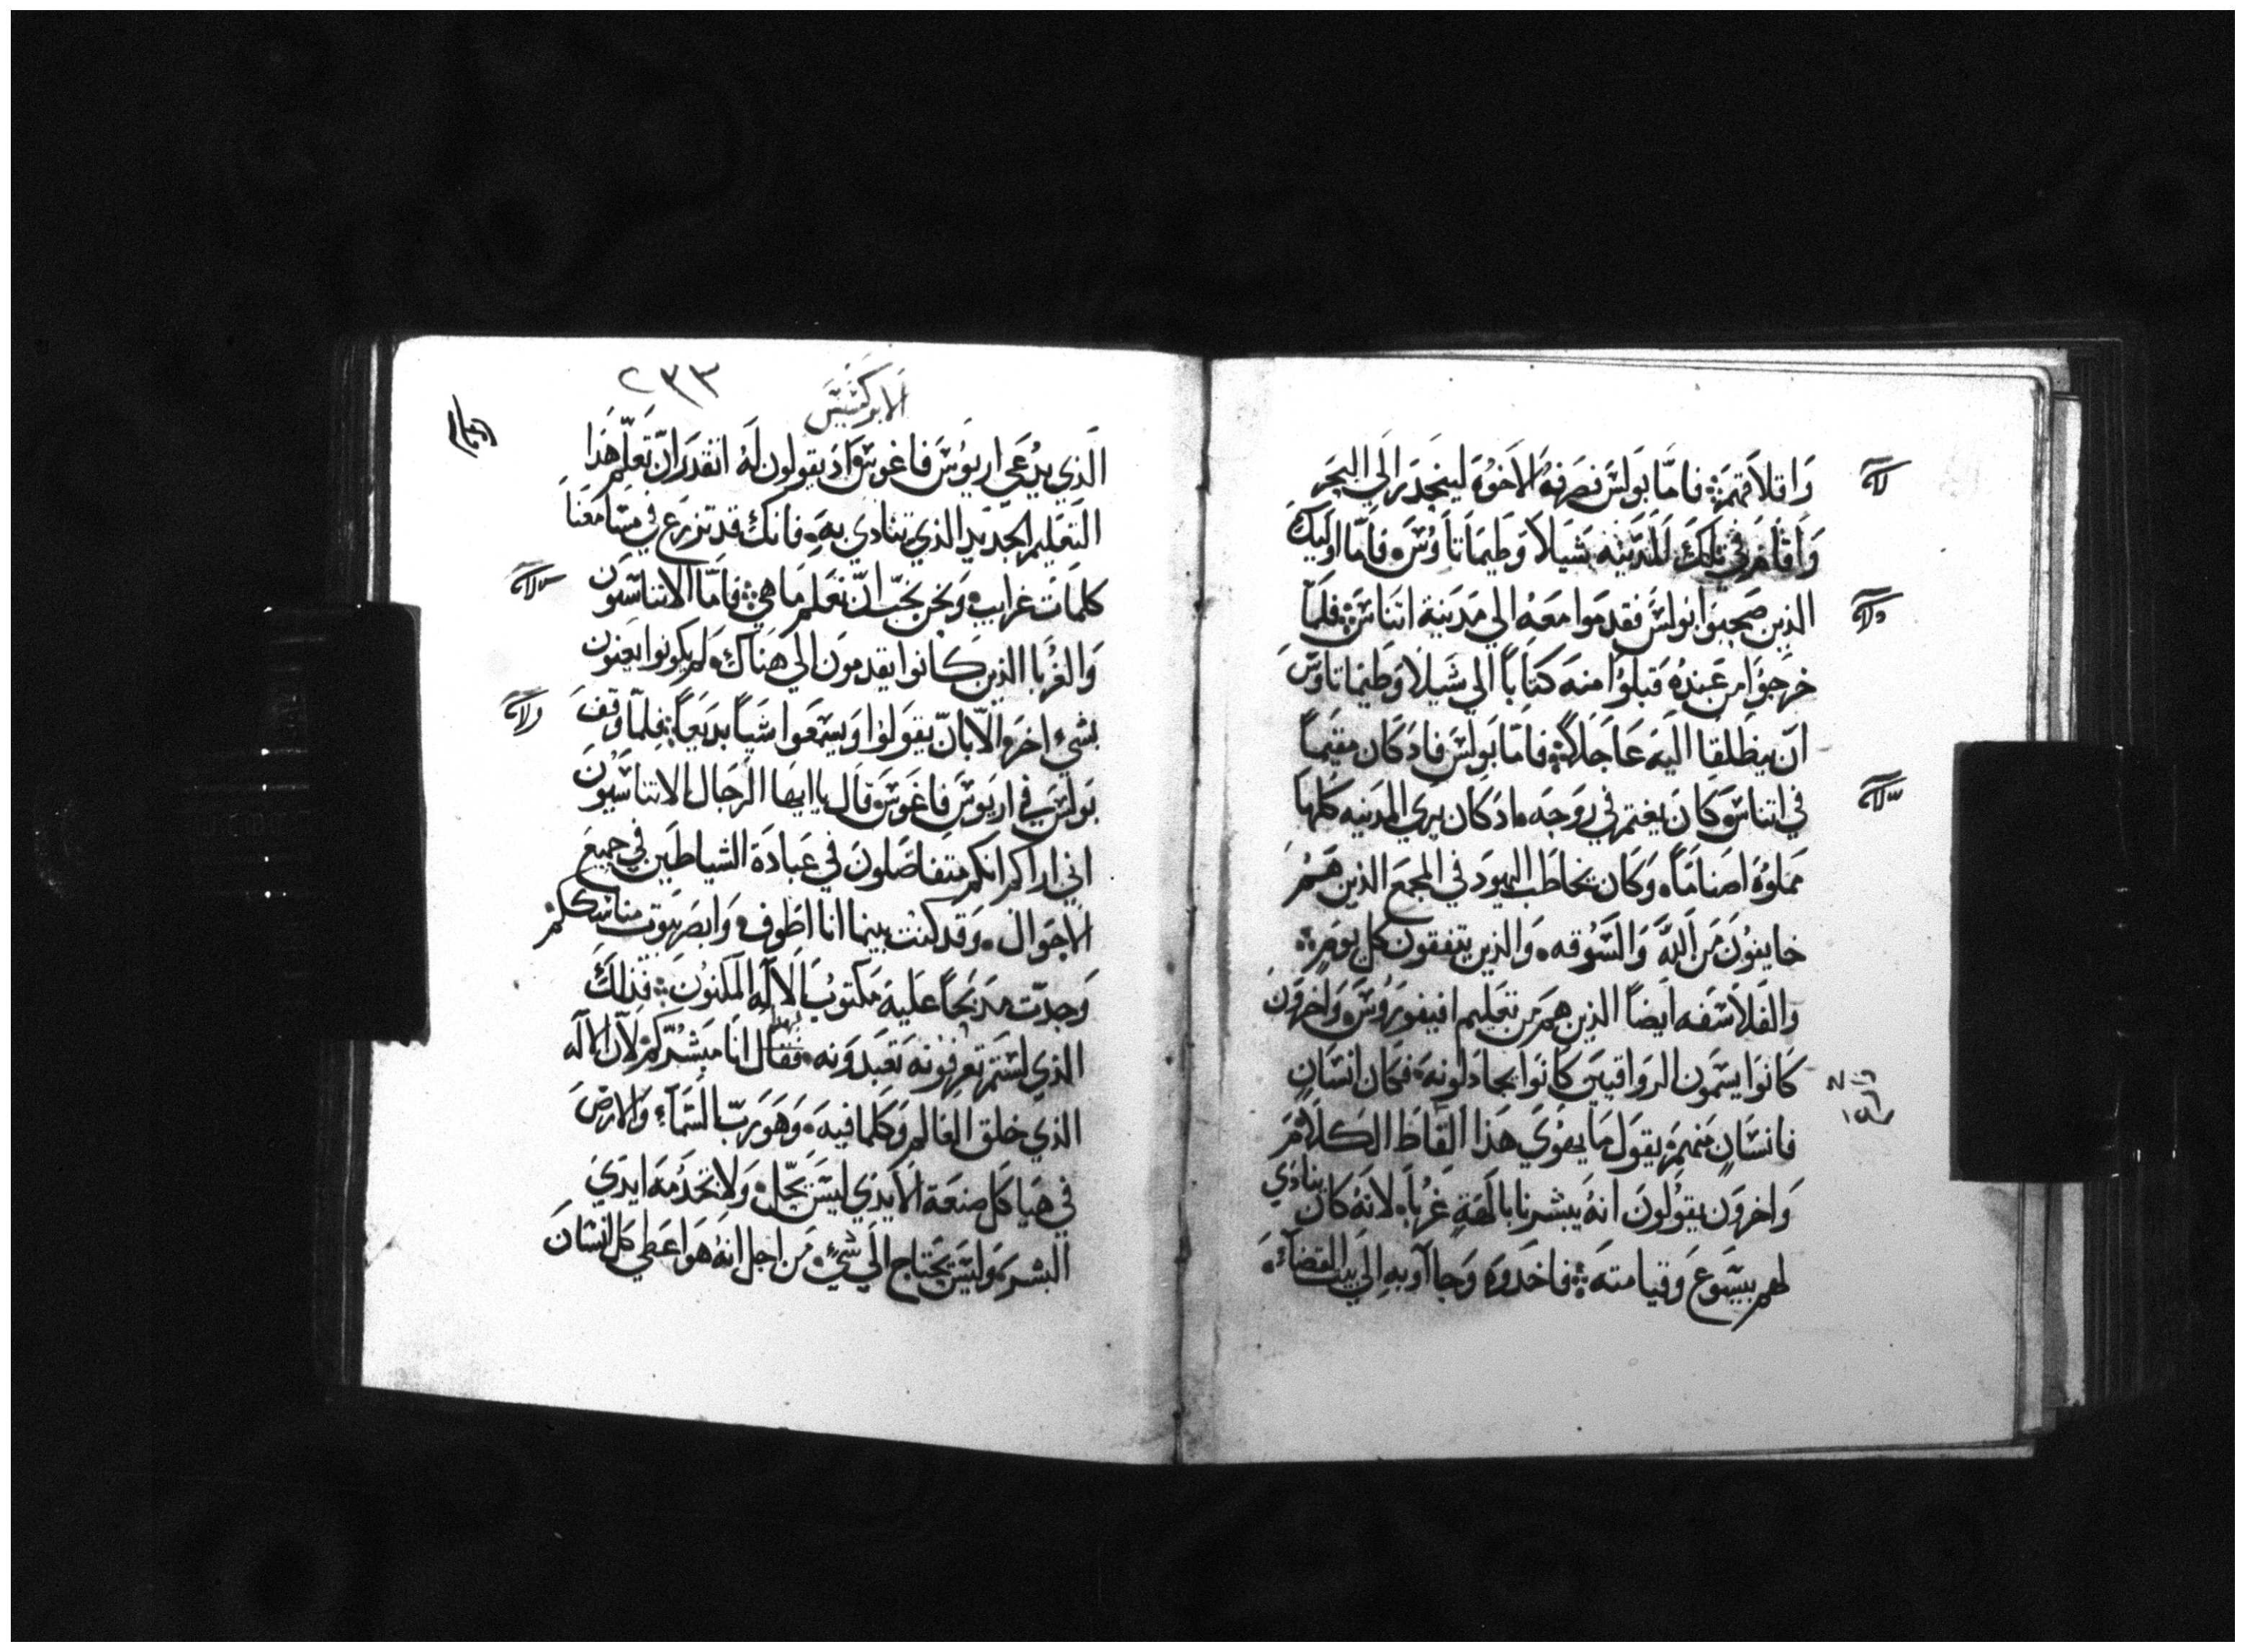 وَاقلاَقهمَ܀ فامَّا بَولسَ فصَرفهُ الاَخوُة لينحَدرَ اَلي البحَر
وَاَقامَ في تلكَ المَدَينه شيلاَ وَطيمَاتاَوُسَ؞ فاَمّا اوَليَكَ
الذين صَحبوَا بَولسَ فقدمَوا معَهُ الي مَدَينة اتنَاسَ܀ فلمَّا
خرَجوُا من عَندِهُ قبَلوُا منهَ كتاباً الَي شَيلاَ وَطيمَاتاوَسَ
انَ ينطَلقا اليَه عَاجَلاً܀ فامّا بَولسَ فادَ كَان مقيَماً
في اتناسَ كاَنَ يغتمَ في روَحَه؞ ادَ كَان يَري المدَينه كلهَا
مَملوُة اصَنامَاً؞ وَكَان يخاطَب اليهوَد في المجمَع الذين همُ
خايفوُنَ مَن اَللَّه وَالسَّوُقه؞ وَالذين يتفقون كل يومَ܀
وَالفلاَسَفه ايَضاً الذين همَ مَن تعَليم افيفورَوُسَ؞ وَاخروَنَ
كاَنوَا يسَمون الروَاقييَن كاَنوَا يجادَلوُنهَ؞ فكَان انسَانٍ
فانسَانٍ منهمَ يقوَل مَا يهوَي هَذا الَقاَط الكَلاَمَ
وَاخروَن يقوُلونَ انهُ يَبشرنا بالَهَةٍ غرُباَ؞ لانهُ كَان ينادَي
لهم بيسَوعَ وَقيامتهَ܀ فاخَدَوهَ وَجاآو بهِ الَي بيَت القضَاءَ؞
٢٣٣
الابركسَيسَ
الَذي يدُعَي اريوُسَ فاغوسَ ادَ يقولون لَهُ اتقدَر انّ تعَلّم هَذا
التَعَليم الجَديَد الذي تنَادي بهَ؞ فانكَ قد تزرَع في مسَامعَناَ
كلمَات غرايب؞ وَنحَن نحَبّ انّ نعَلم مَا هي܀ فامّا الاتناسَيوُن
وَالغرُبا الذين كَانوا يقدمونَ الَي هنَاكَ؞ لم يكَونوا يعَنون
بشيء اخرَ الاّ بانّ يقوَلوُا وَيسَمعَوا شيَاً بدَيعَاً܀ فلمّا وَقفَ
بَولسَ في اريَوسَ فاغَوسَ قاَل يا ايهَا الرَجَال الاتناسَيوُنَ
اني اراكم انكم متفاضَلونَ في عَبادَة الشياطَين في جميعَ
الاحوَال؞ وَقدَ كنت بينما انا اطَوف؞ وَابصَر بيَوت مناسككمَ
وَجدّت مدَبحَاً عَليهَ مَكتوُب الاَلَه المكنوُنَ܀ فذلكَ
الذي لسَتم تعَرفوُنهَ تعَبدَوَنه؞ فقال انَا مبَشُرّكم لان الالَه
الذي خلق العَالم وَكلمَا فيهَ؞ وَهوَ رَبّ السَّمَآء وَالارَضَ
في هيَاكَل صنعَة الاَيدَي ليسَ يحَلّ؞ وَلا تخدَمهَ ايدَيَ
البشر؞ وَليسَ يحَتاج الَي شيَءٍ؞ مَن اجل انهُ هوَ اعَطَي كل انسَانَ